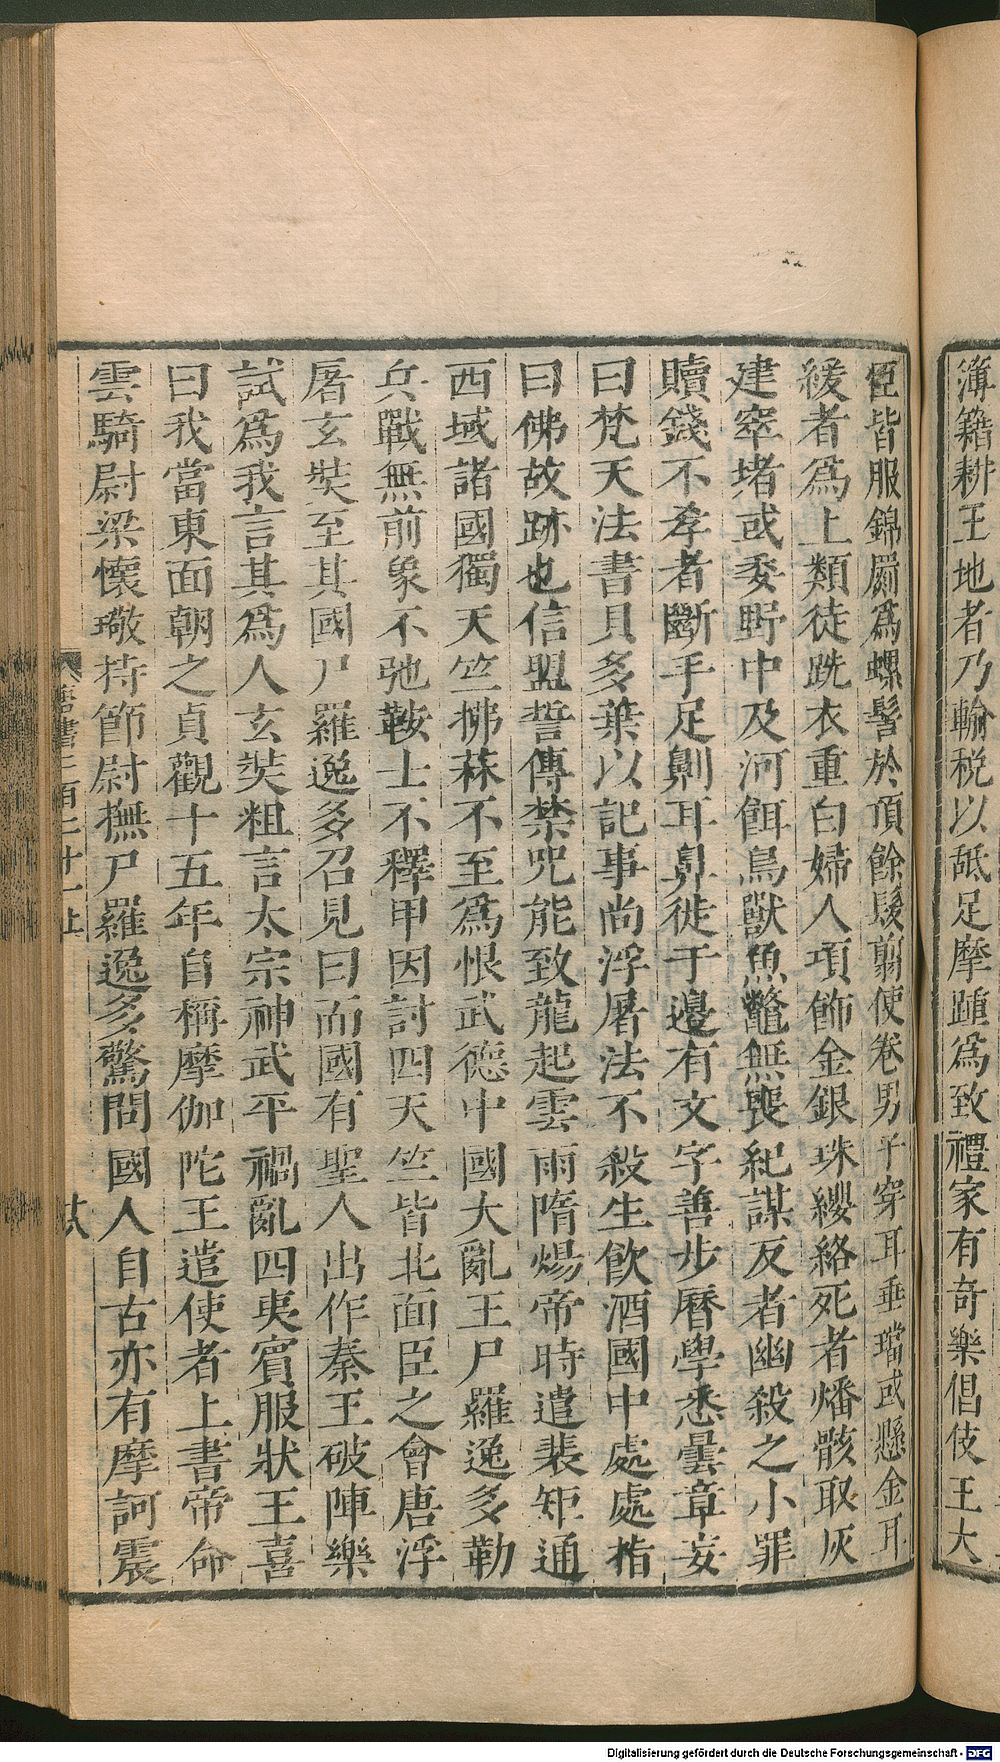 簿籍耕王地者乃輸稅以䑛足摩踵爲致禮家有奇樂倡伎王大
臣皆服錦罽爲螺髻於頂餘髮翦使卷男子穿耳垂璫或懸金耳
緩者爲上類徒跣衣重白婦人項飾金銀珠纓絡死者燔骸取灰
建窣堵或委野中及河餌鳥獸魚鼈無喪紀謀反者幽殺之小罪
贖錢不孝者斷手足劓耳鼻徙于邊有文字善步曆學悉曇章妄
曰梵天法書貝多葉以記事尚浮屠法不殺生飲酒國中處處指
曰佛故跡也信盟誓傳禁咒能致龍起雲雨隋煬帝時遣裴矩通
西域諸國獨天竺拂菻不至爲恨武德中國大亂王尸羅逸多勒
兵戰無前象不弛鞍士不釋甲因討四天竺皆北面臣之會唐浮
屠玄奘至其國尸羅逸多召見曰而國有聖人出作秦王破陣樂
試爲我言其爲人玄奘粗言太宗神武平禍亂四夷賓服狀王喜
曰我當東面朝之貞觀十五年自稱摩伽陀王遣使者上書帝命
雲騎尉梁懷璥持節尉撫尸羅逸多驚問國人自古亦有摩訶震
唐書二百二十一上
廿八
Digitalisierung gefördert durch die Deutsche Forschungsgemeinschaft - DFG